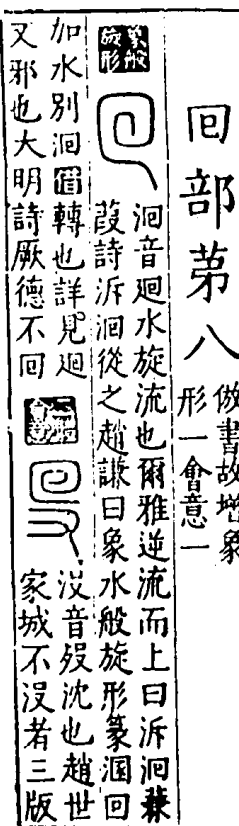 回部苐八
倣書故增象
形一會意一
象般
旋形
洄音迴水旋流也爾雅逆流而上曰泝洄蒹
葭詩泝洄從之趙謙曰象水般旋形篆溷回
加水別洄借轉也詳見迴
又邪也大明詩厥德不回
没音歿沈也趙世
家城不没者三版